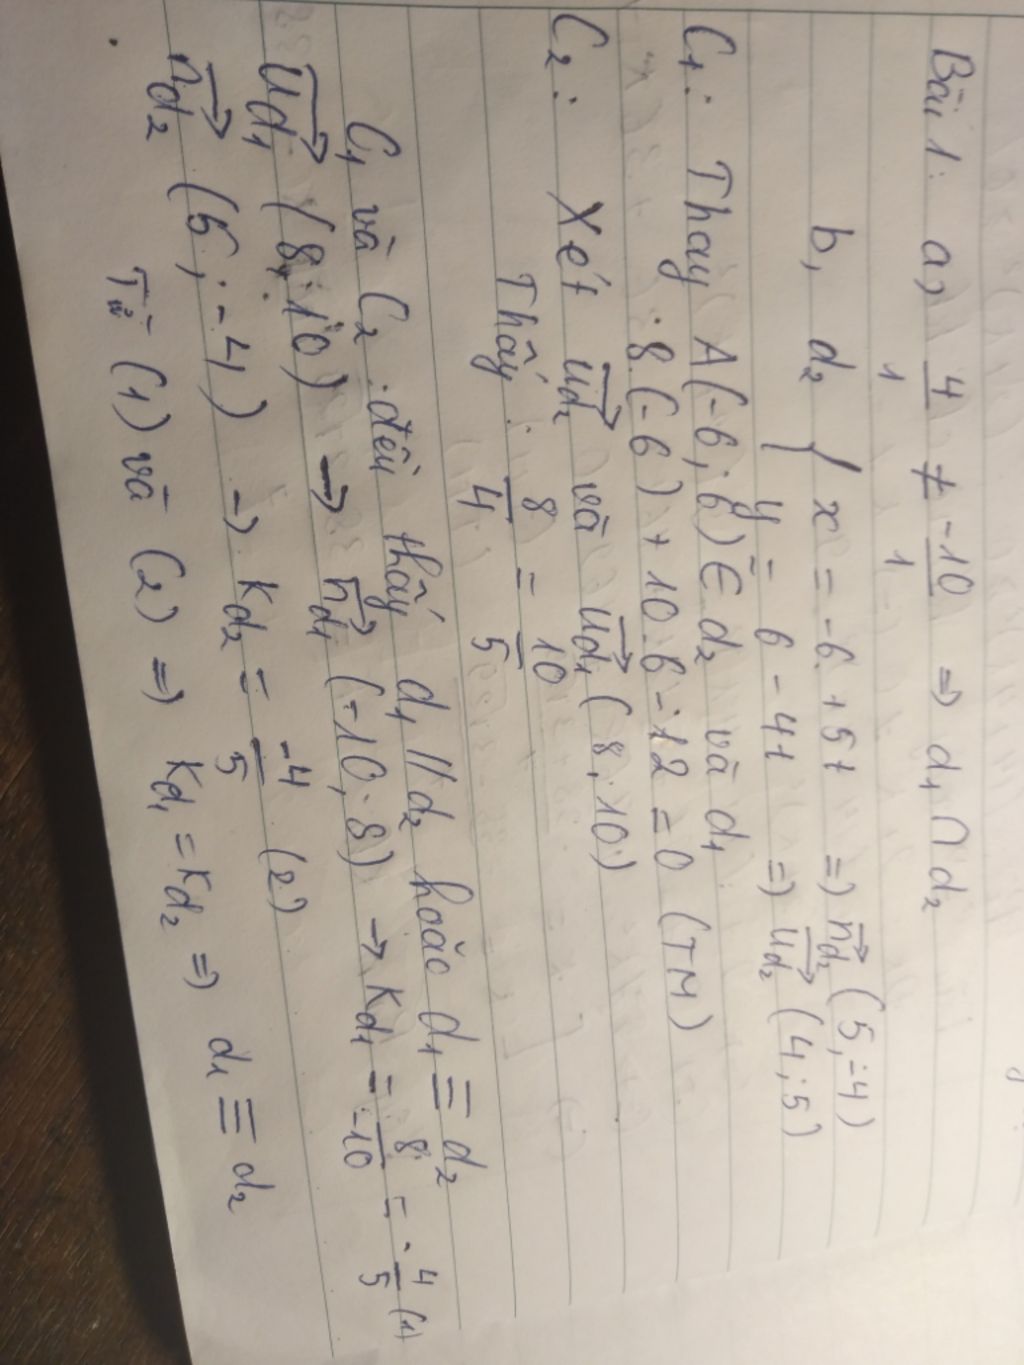 Bài 1: a, 4/1 ≠ -10/1 => d₁ ∩ d₂
b, d₂ { x = -6 + 5t => n⃗d₂ (5;-4)
y = 6 - 4t => u⃗d₂ (4;5)
C₁: Thay A(-6;6) ∈ d₂ và d₁
8.(-6) + 10.6 - 12 = 0 (TM)
C₂: Xét u⃗d₂ và u⃗d₁ (8;10)
Thấy: 8/4 = 10/5
C₁ và C₂ đều thấy d₁ // d₂ hoăc d₁ ≡ d₂
u⃗d₁ (8;10) → n⃗d₁ (-10;8) → kd₁ = 8/-10 = -4/5 (1)
n⃗d₂ (5;-4) → kd₂ = -4/5 (2)
Từ (1) và (2) => kd₁ = kd₂ => d₁ ≡ d₂